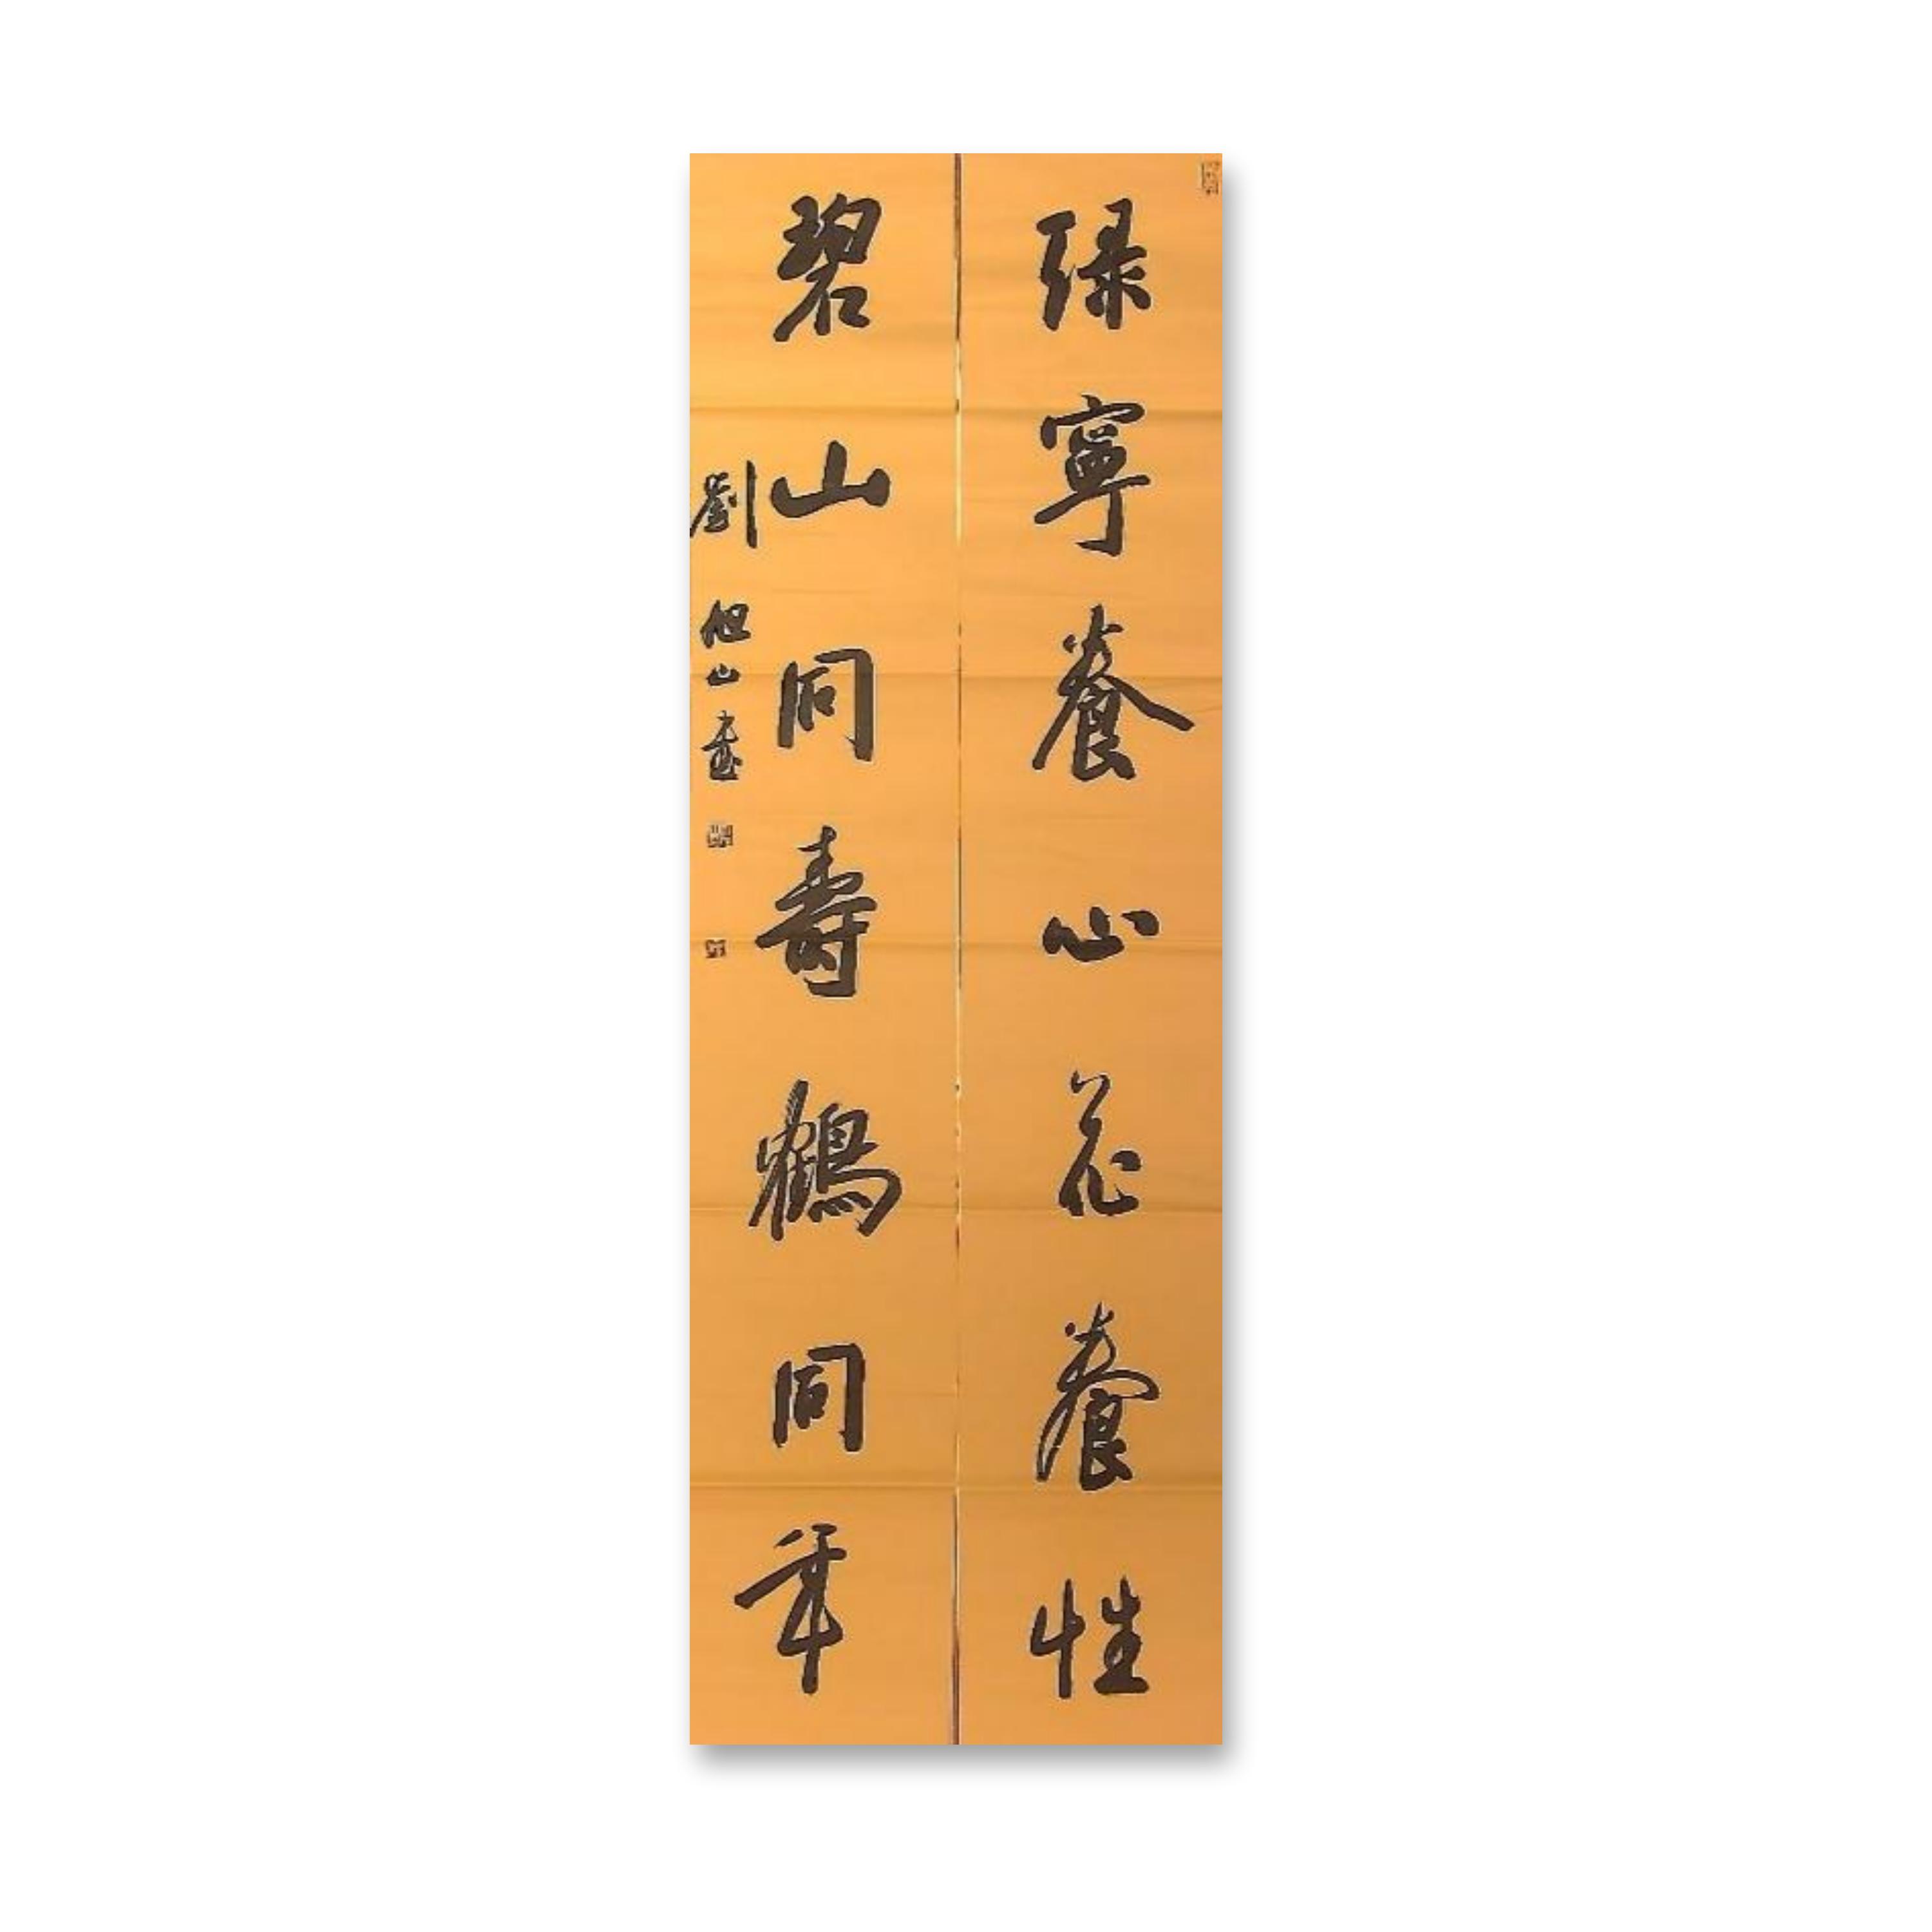 緑寧養心花養性
碧山同壽鶴同年
劉旭山書